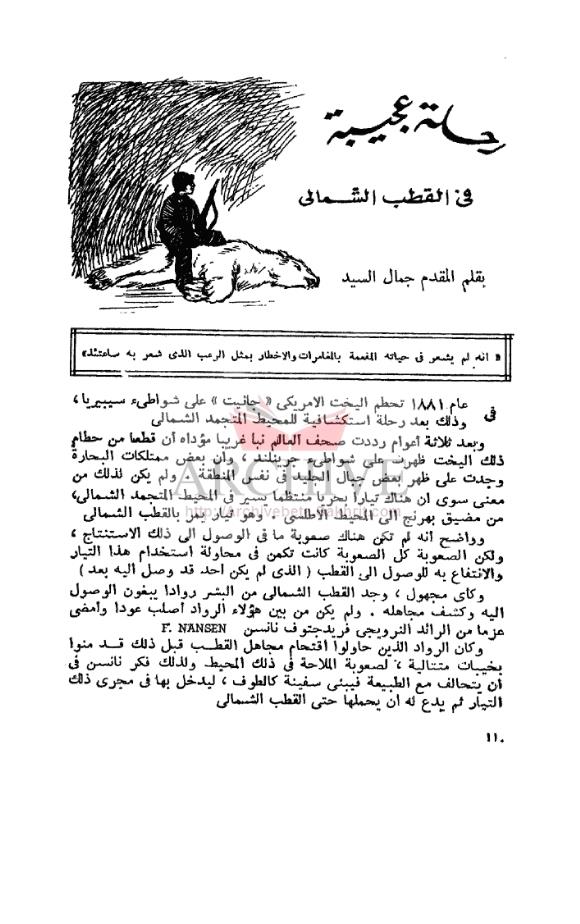 رحلة عجيبة
في القطب الشمالي
بقلم المقدم جمال السيد
« انه لم يشعر في حياته المفعمة بالمغامرات والاخطار بمثل الرعب الذي شعر به ساعتئذ»
في عام ١٨٨١ تحطم اليخت الامريكي « جانيت » على شواطىء سيبيريا ،
وذلك بعد رحلة استكشافية للمحيط المتجمد الشمالي
وبعد ثلاثة أعوام رددت صحف العالم نبأ غريبا مؤداه أن قطعا من حطام
ذلك اليخت ظهرت على شواطىء جرينلند ، وأن بعض ممتلكات البحارة
وجدت على ظهر بعض جبال الجليد في نفس المنطقة . ولم يكن لذلك من
معنى سوى ان هناك تيارا بحريا منتظما يسير في المحيط المتجمد الشمالي،
من مضيق بهرنج الى المحيط الاطلسي . وهو تيار يمر بالقطب الشمالي
وواضح انه لم تكن هناك صعوبة ما في الوصول الى ذلك الاستنتاج ،
ولكن الصعوبة كل الصعوبة كانت تكمن في محاولة استخدام هذا التيار
والانتفاع به للوصول الى القطب ( الذي لم يكن احد قد وصل اليه بعد )
وكأي مجهول ، وجد القطب الشمالي من البشر روادا يبغون الوصول
اليه وكشف مجاهله . ولم يكن من بين هؤلاء الرواد أصلب عودا وأمضى
عزما من الرائد النرويجي فريدجتوف نانسن F. NANSEN
وكان الرواد الذين حاولوا اقتحام مجاهل القطب قبل ذلك قد منوا
بخيبات متتالية ، لصعوبة الملاحة في ذلك المحيط ولذلك فكر نانسن في
أن يتحالف مع الطبيعة فيبني سفينة كالطوف ، ليدخل بها في مجرى ذلك
التيار ثم يدع له ان يحملها حتى القطب الشمالي
١١٠
ARCHIVE